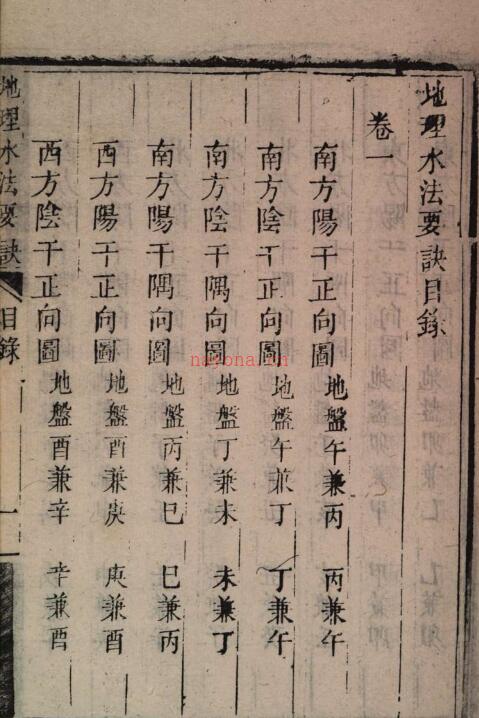 地理水法要訣目錄
卷一
南方陽干正向圖 地盤午兼丙 丙兼午
南方陰干正向圖 地盤午兼丁 丁兼午
南方陰干隅向圖 地盤丁兼未 未兼丁
南方陽干隅向圖 地盤丙兼巳 巳兼丙
西方陽干正向圖 地盤酉兼庚 庚兼酉
西方陰干正向圖 地盤酉兼辛 辛兼酉
地理水法要訣 目錄 一
nayona.cn